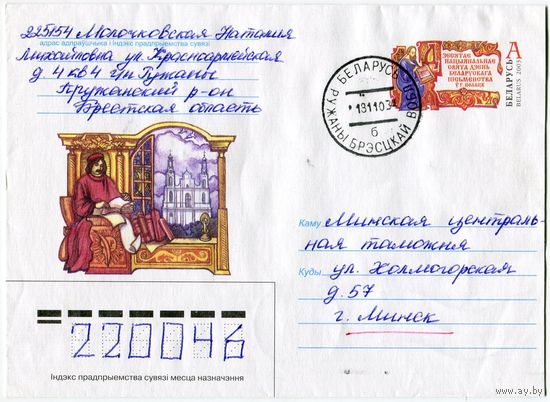 225154 Молочковская Наталия
адрас адпраўшчыка і індэкс прадпрыемства сувязі
Михайловна ул. Красноармейская
д. 4 кв 4 г/п Ружаны
Пружанский р-он
Брестская область
БЕЛАРУСЬ
131103
б
РУЖАНЫ БРЭСЦКАЙ ВОБЛ
ДЗЕСЯТАЕ
НАЦЫЯНАЛЬНАЕ
СВЯТА ДЗЕНЬ
БЕЛАРУСКАГА
ПІСЬМЕНСТВА
Ў Г. ПОЛАЦК
А
БЕЛАРУСЬ
BELARUS 2003
Каму Минская централь-
ная таможня
Куды ул. Холмогорская
д. 57
г. Минск
220046
Індэкс прадпрыемства сувязі месца назначэння
www.ay.by